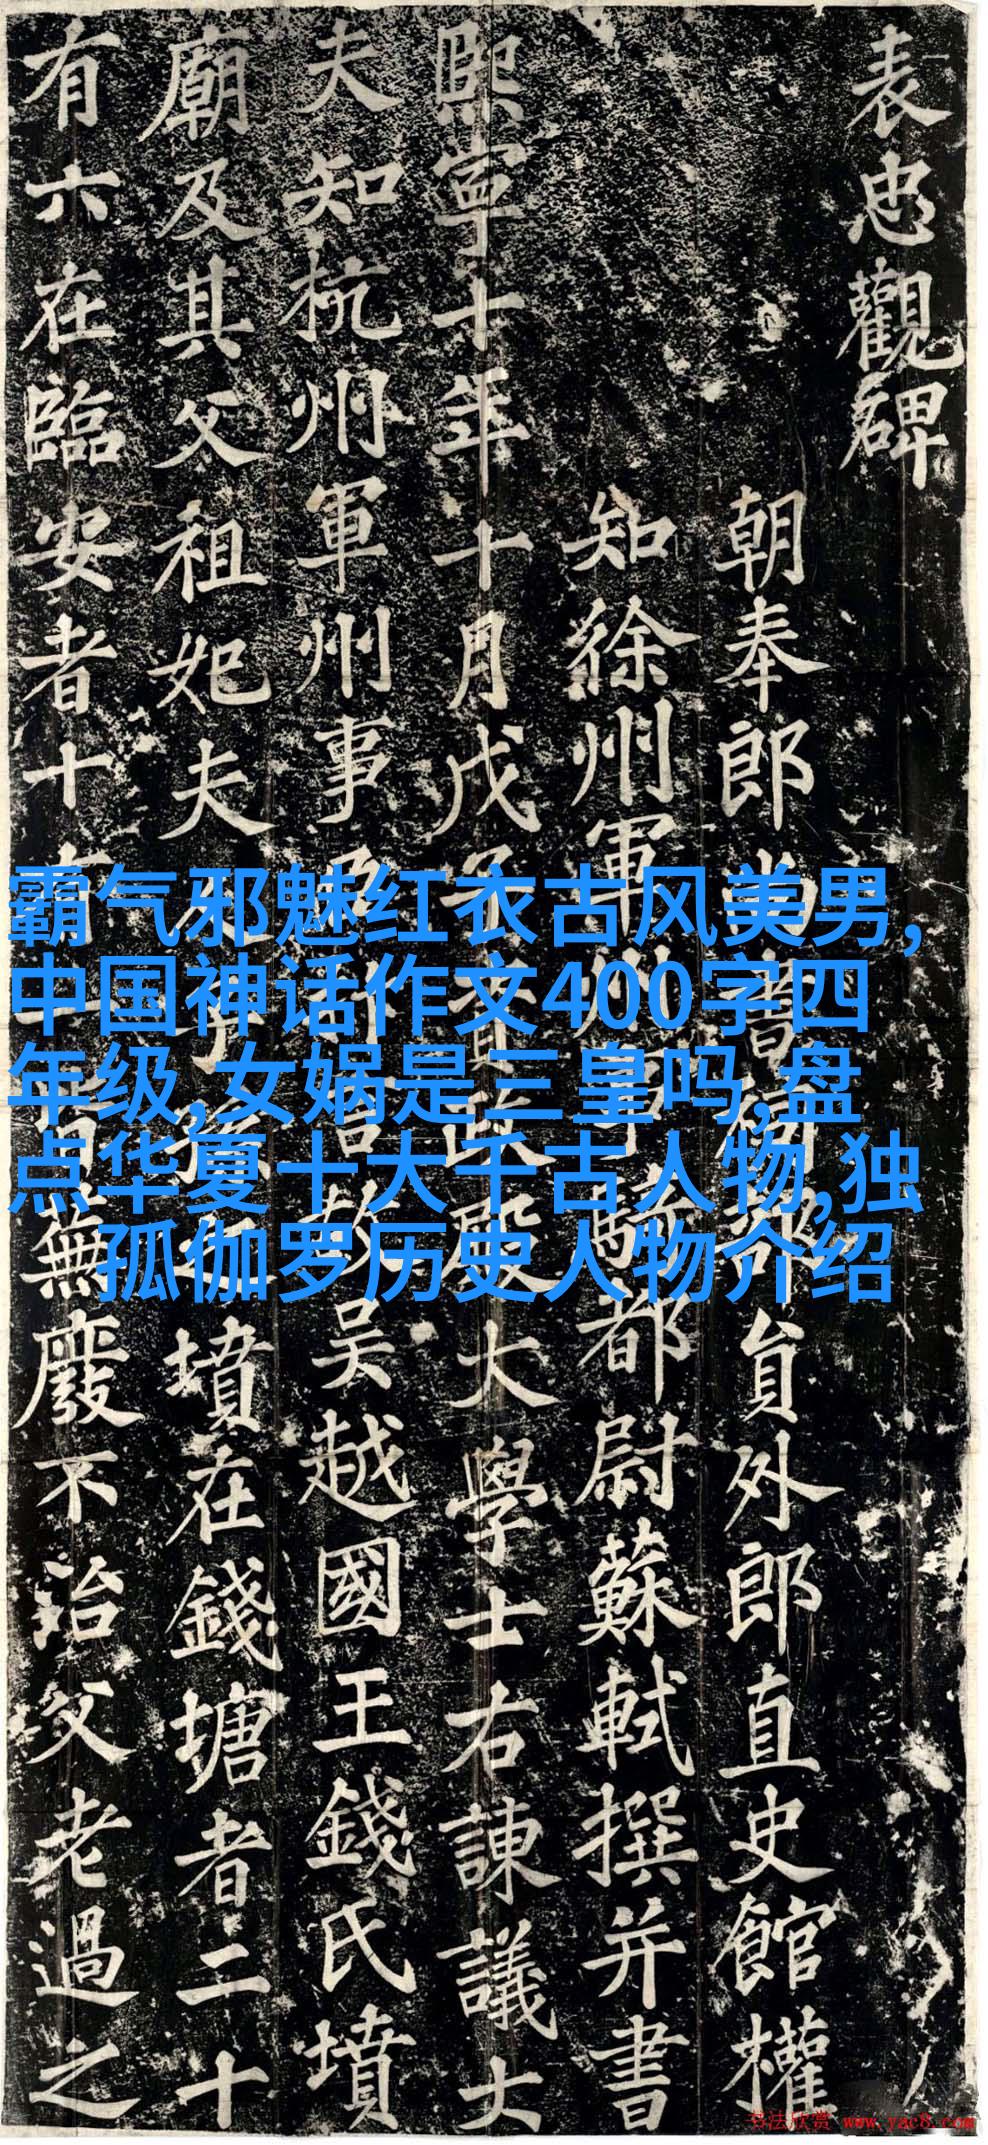 表忠觀碑
朝奉郎尚書祠部員外郎直史館權
知徐州軍州事騎都尉蘇軾撰并書
熙寧十年十月戊子資政殿大學士右諫議大
夫知杭州軍州事臣抃言故吳越國王錢氏墳
廟及其父祖妃夫人子孫之墳在錢塘者二十
有六在臨安者十有一皆蕪廢不治父老過之
霸气邪魅红衣古风美男,
中国神话作文400字四
年级,女娲是三皇吗,盘
点华夏十大千古人物,独
孤伽罗历史人物介绍
书法欣赏 www.yac8.com